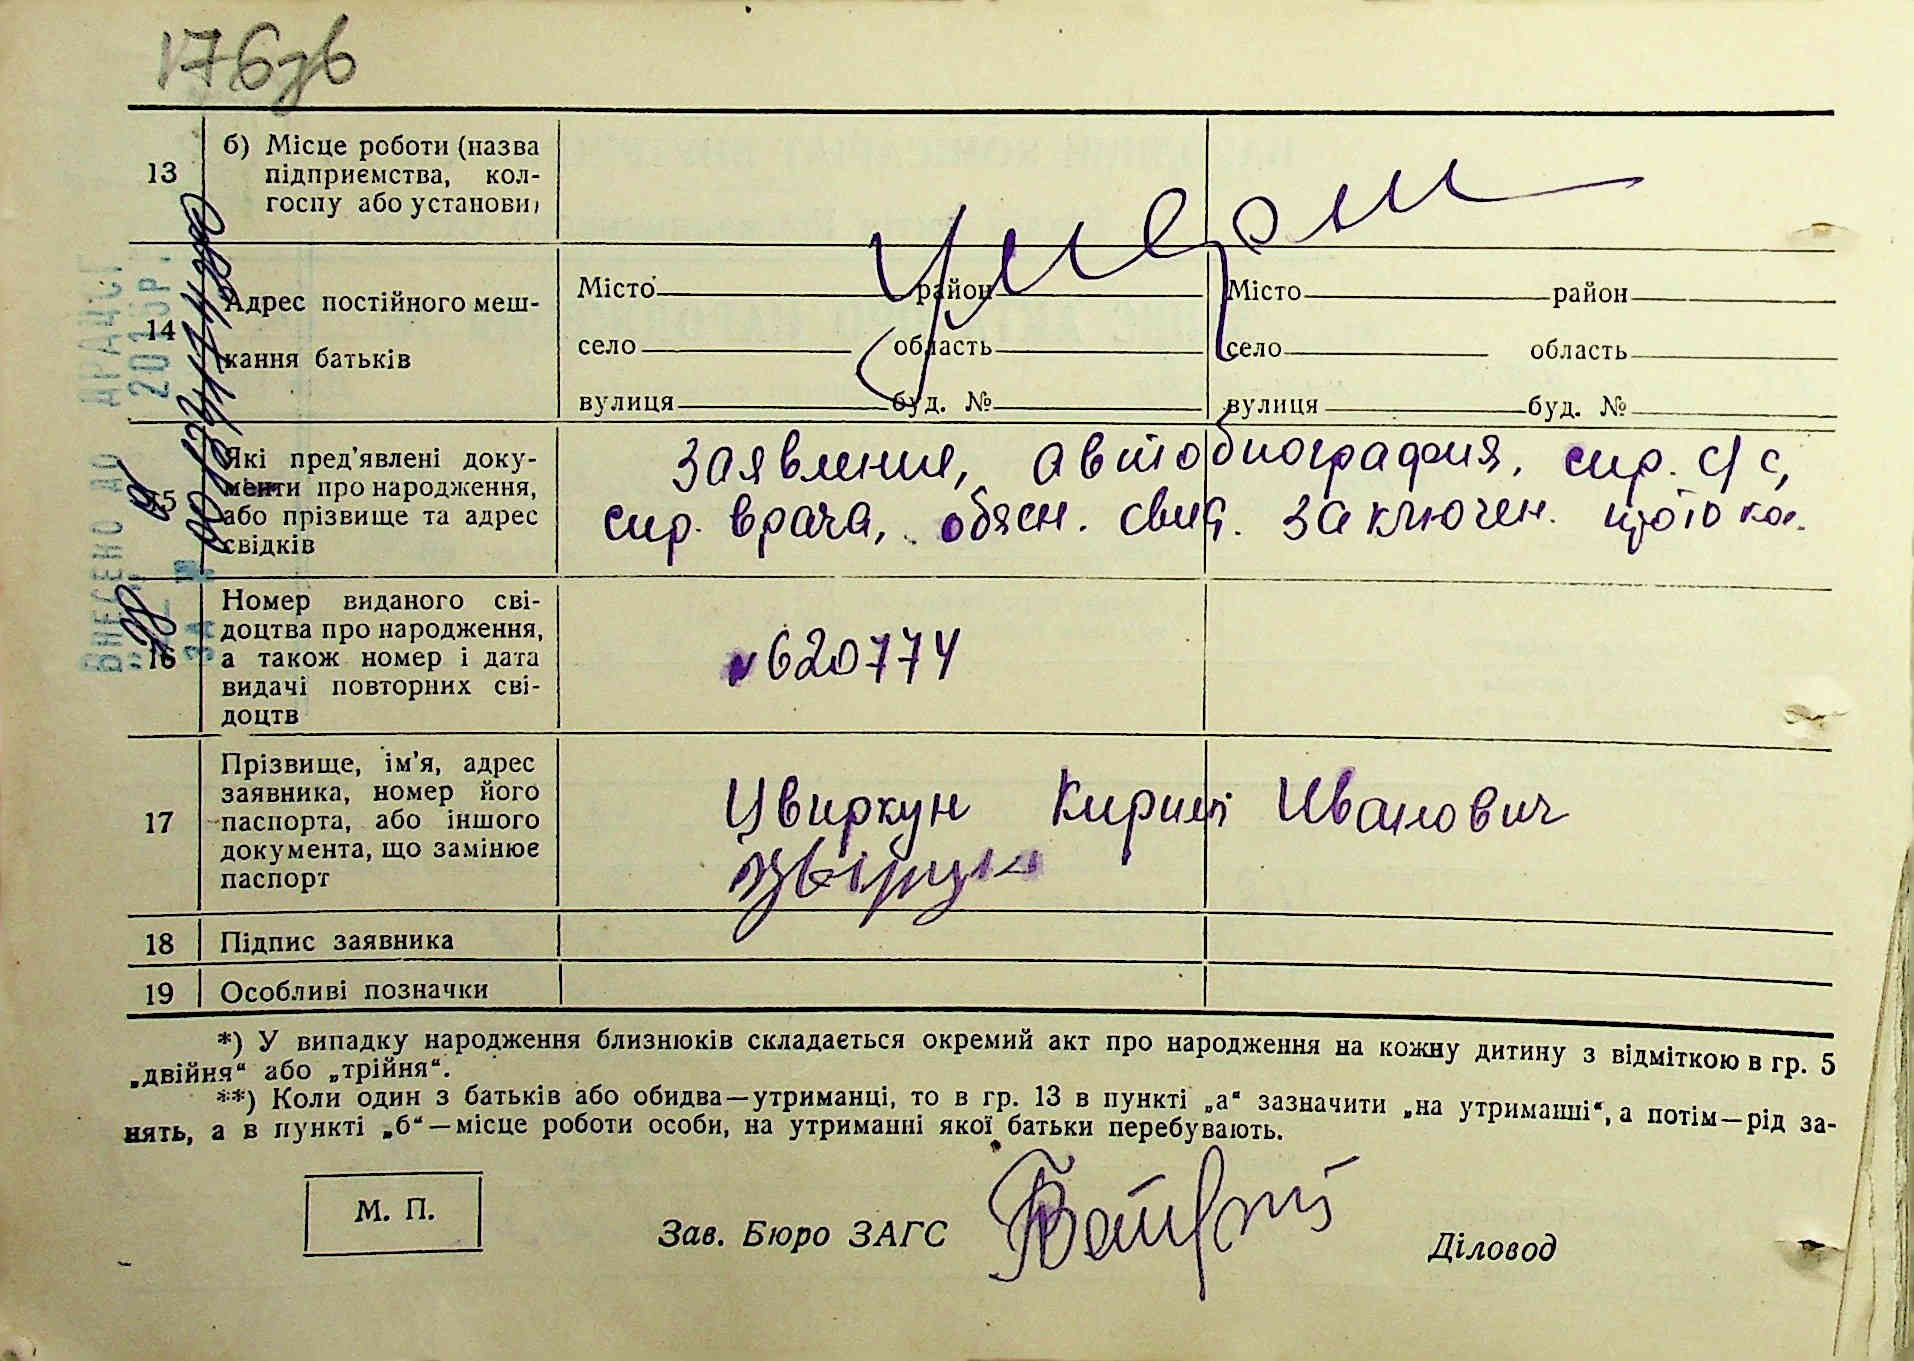 176зв
13
б) Місце роботи (назва
підприємства, кол-
госпу або установи)
умерли
14
Адрес постійного меш-
кання батьків
Місто район
село область
вулиця буд. №
Місто район
село область
вулиця буд. №
ВНЕСЕНО ДО ДРАЦСГ
2010р.
ЗА №
15
Які пред’явлені доку-
менти про народження,
або прізвище та адрес
свідків
Заявление, автобиография, спр. с/с,
спр. врача, обясн. свид. заключен.
16
Номер виданого сві-
доцтва про народження,
а також номер і дата
видачі повторних сві-
доцтв
№ 620774
17
Прізвище, ім’я, адрес
заявника, номер його
паспорта, або іншого
документа, що замінює
паспорт
Цвиркун Кирилл Иванович
18 Підпис заявника
19 Особливі позначки
*) У випадку народження близнюків складається окремий акт про народження на кожну дитину з відміткою в гр. 5
„двійня“ або „трійня“.
**) Коли один з батьків або обидва—утриманці, то в гр. 13 в пункті „а“ зазначити „на утриманні“, а потім—рід за-
нять, а в пункті „б“—місце роботи особи, на утриманні якої батьки перебувають.
М. П.
Зав. Бюро ЗАГС
Діловод